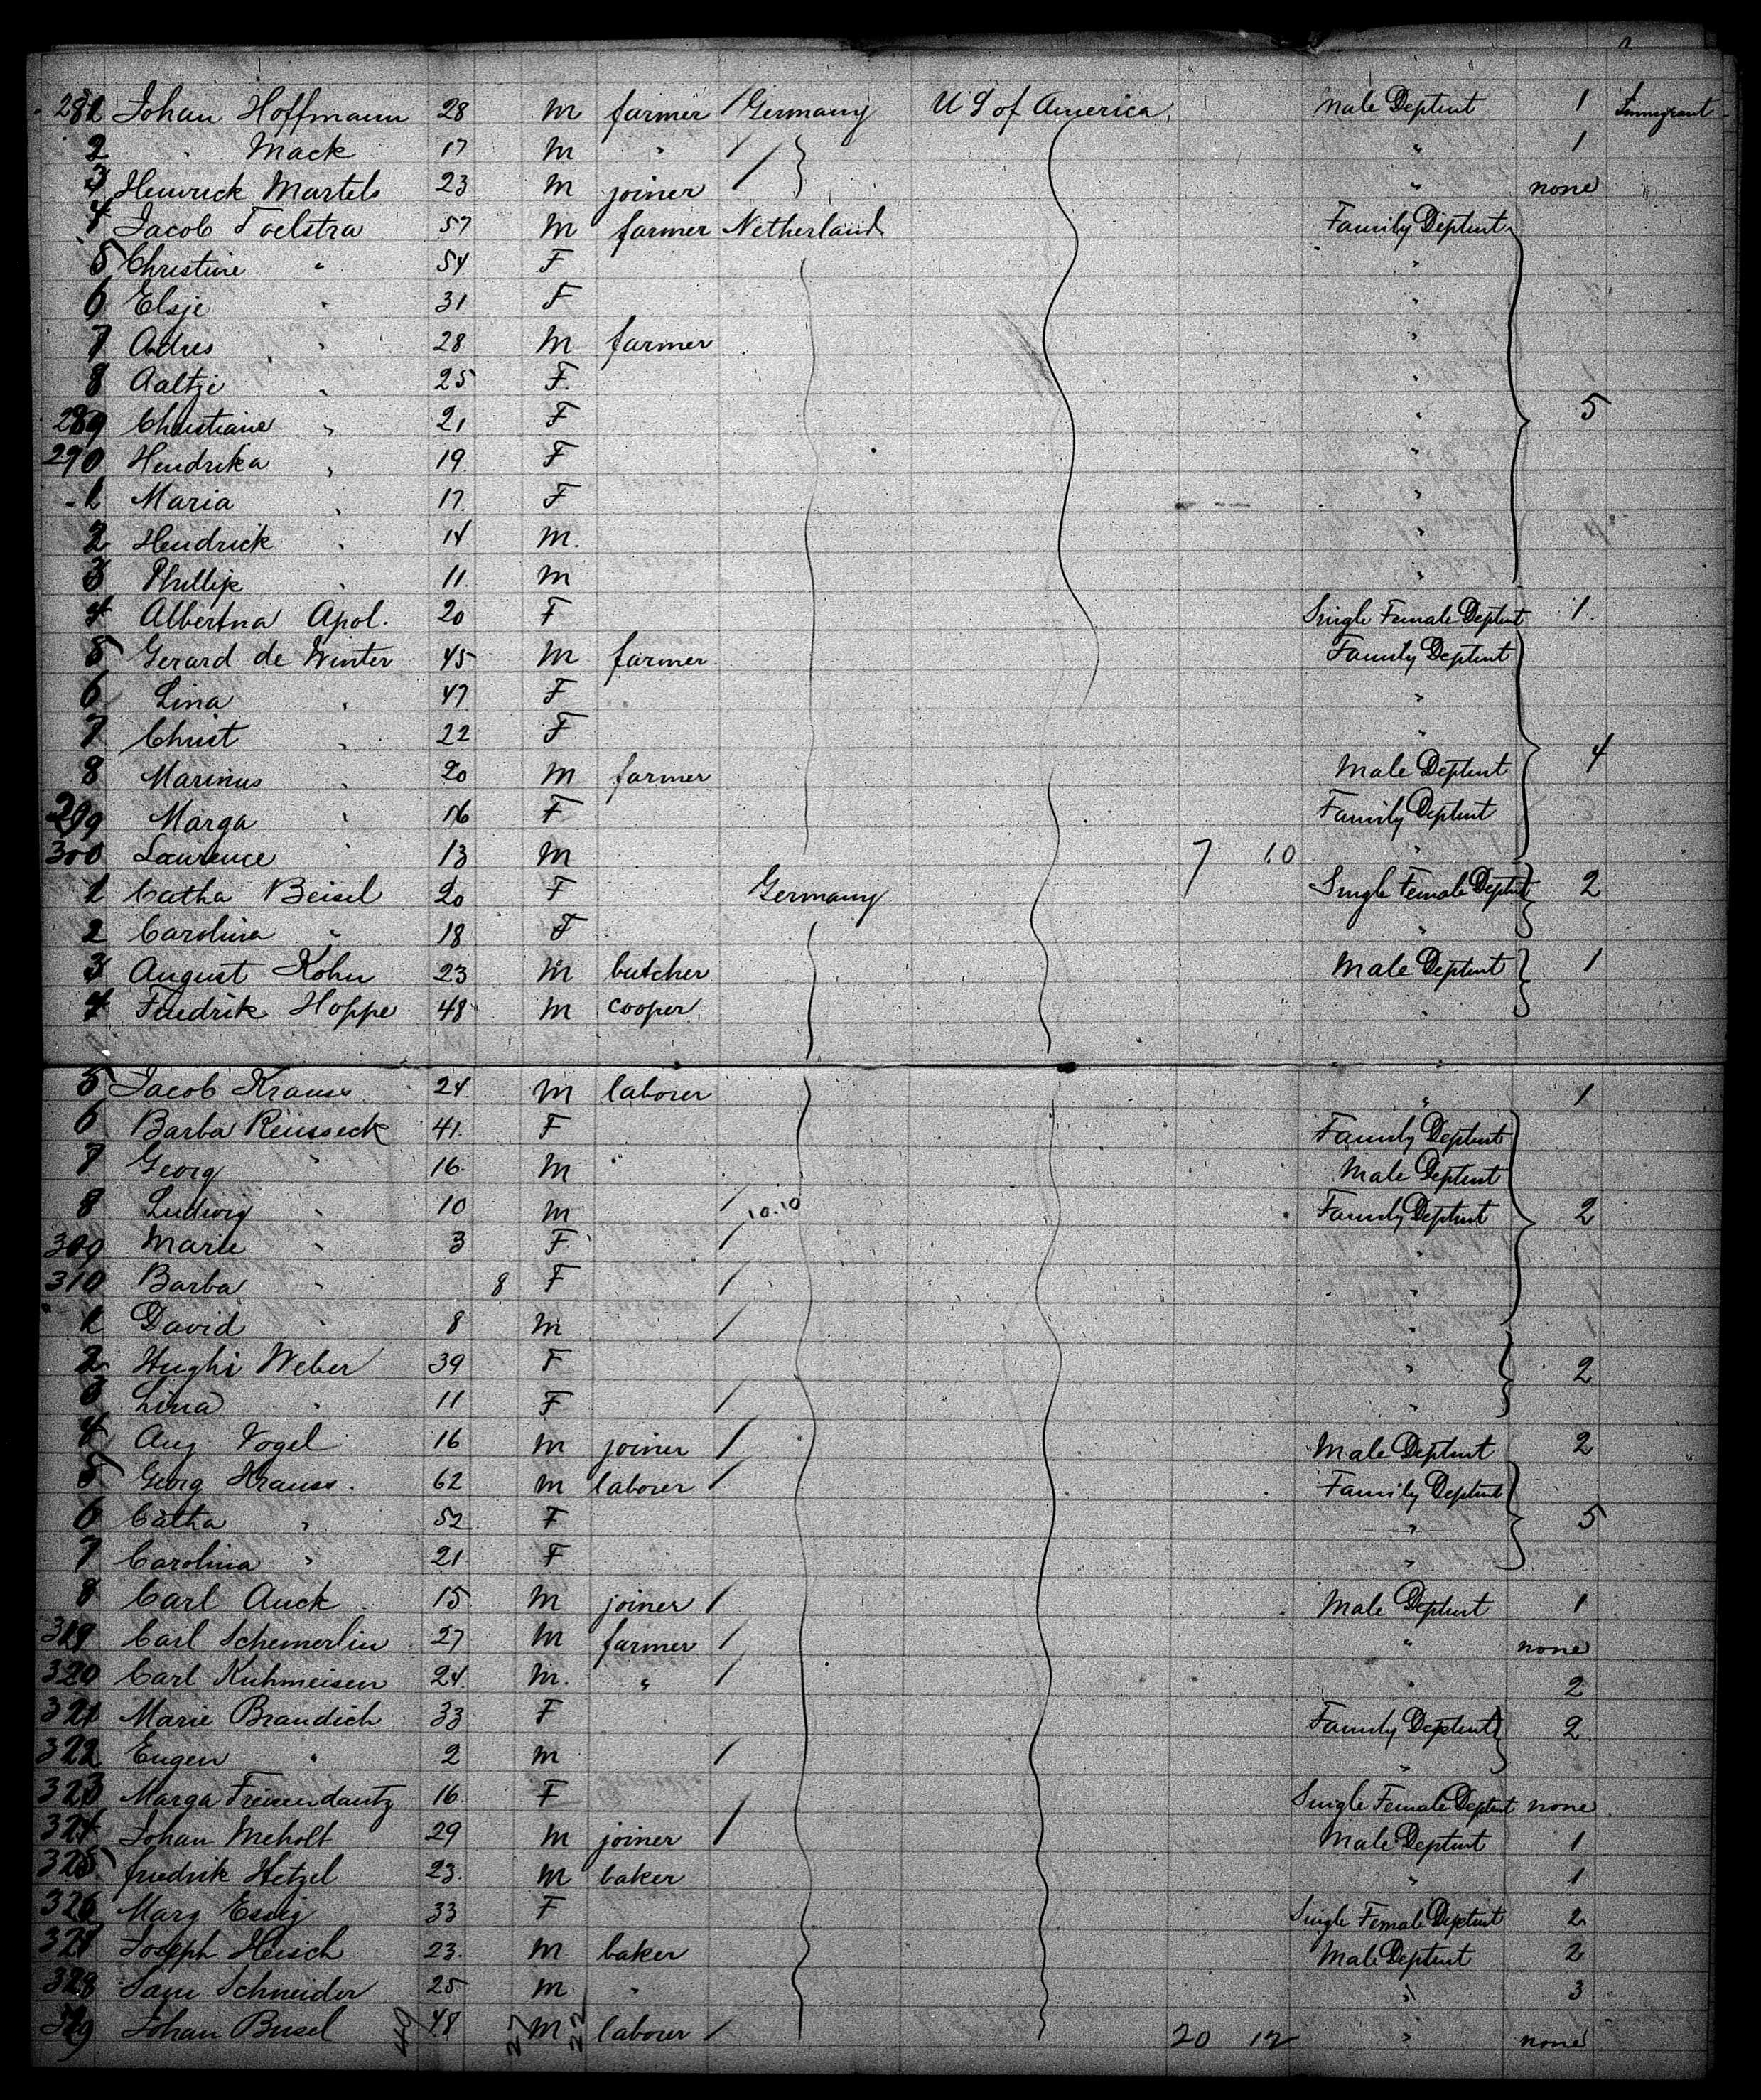 281 Johan Hoffmann 28 M farmer / Germany U S of America. Male Deptent 1 Immigrant
2 " Mack 17 M " / " 1
3 Heinrick Martels 23 M joiner / " none "
4 Jacob Toelstra 57 M farmer Netherland Family Deptent
5 Christine " 54 F "
6 Elsje " 31 F "
7 Adres " 28 M farmer "
8 Aaltje " 25 F "
289 Christiane " 21 F " 5
290 Hendrika " 19 F "
1 Maria " 17 F "
2 Hendrick " 14 M "
3 Phillip " 11 M "
4 Albertna Apol. 20 F Single Female Deptent 1.
5 Gerard de Winter 45 M farmer Family Deptent
6 Lina " 47 F "
7 Christ " 22 F "
8 Marinus " 20 M farmer Male Deptent 4
299 Marga " 16 F Family Deptent
300 Laurence " 13 M 7 10 "
1 Catha Beisel 20 F Germany Single Female Deptent 2
2 Carolina " 18 F "
3 August Kohn 23 M butcher Male Deptent 1
4 Friedrik Hoppe 48 M cooper "
5 Jacob Krauss 24 M laborer " 1
6 Barba Reusseck 41 F Family Deptent
7 Georg " 16 M " Male Deptent
8 Ludwig " 10 M / 10.10 Family Deptent 2
309 Marie " 3 F / "
310 Barba " 8 F / "
1 David " 8 M / "
2 Hughi Weber 39 F " 2
3 Lina " 11 F / "
4 Aug. Vogel 16 M joiner / Male Deptent 2
5 Georg Krauss. 62 M laborer / Family Deptent
6 Catha " 52 F " 5
7 Carolina " 21 F "
8 Carl Auck 15 M joiner / Male Deptent 1
319 Carl Schemerlin 27 M farmer / " none
320 Carl Kuhmeisen 24 M. " / " 2
321 Marie Brandich 33 F Family Deptent 2
322 Eugen " 2 M / "
323 Marga Freiendantz 16 F Single Female Deptent none
324 Johan Meholt 29 M joiner / Male Deptent 1
325 fredrik Hetzel 23 M baker " 1
326 Marg Essig 33 F Single Female Deptent 2
327 Joseph Heisch 23 M baker Male Deptent 2
328 Sam Schneider 25 M " " 3
329 Johan Busel 49 48 27 M 22 laborer / 20 12 " none